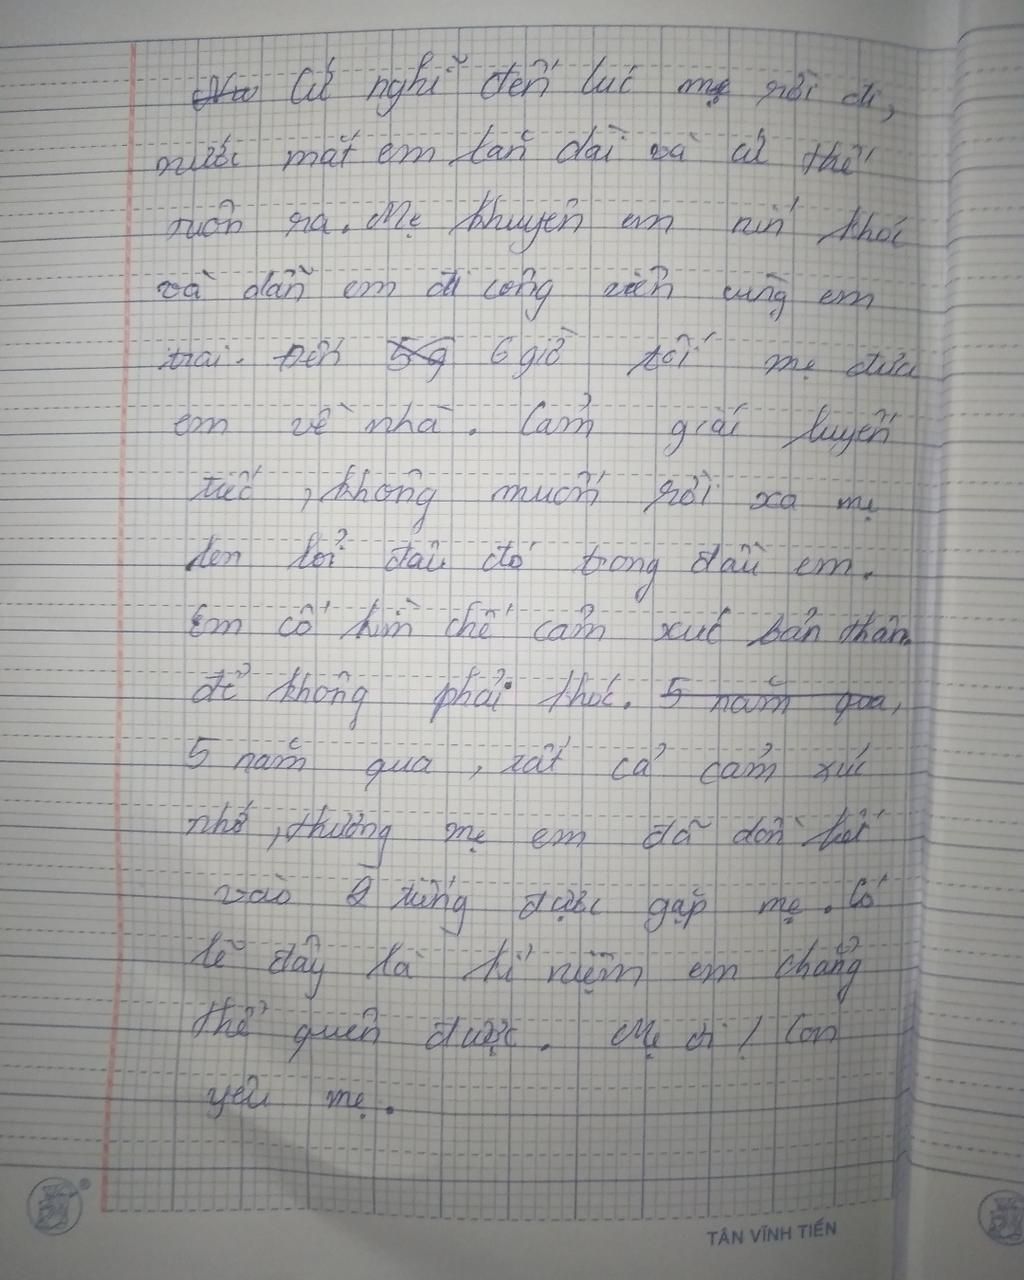 Cứ nghĩ đến lúc mẹ rời đi,
nước mắt em lăn dài và cứ thế
tuôn ra. Mẹ khuyên em nín khóc
và dẫn em đi công viên cùng em
trai. Đến 5g 6 giờ tối mẹ đưa
em về nhà. Cảm giác luyến
tiếc, không muốn rời xa mẹ
len lỏi đâu đó trong đầu em.
Em cố kìm chế cảm xúc bản thân
để không phải khóc. 5 năm qua,
5 năm qua, tất cả cảm xúc
nhớ, thương mẹ em đã dồn hết
vào 2 tiếng được gặp mẹ. Có
lẽ đây là kỉ niệm em chẳng
thể quên được. Mẹ ơi! Con
yêu mẹ.
TÂN VĨNH TIẾN